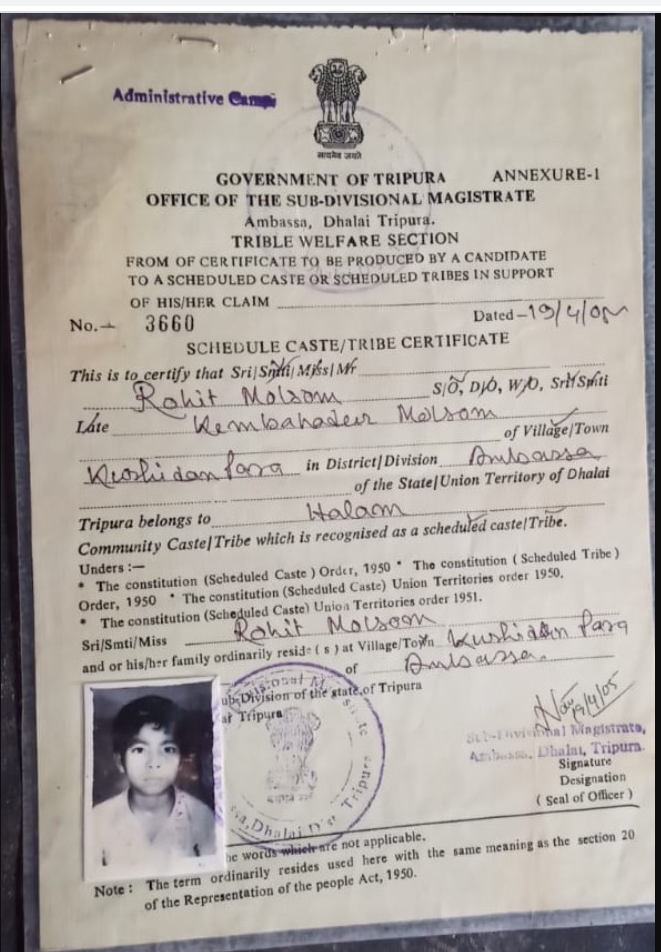 Administrative Camp
सत्यमेव जयते
GOVERNMENT OF TRIPURA ANNEXURE-1
OFFICE OF THE SUB-DIVISIONAL MAGISTRATE
Ambassa, Dhalai Tripura.
TRIBLE WELFARE SECTION
FROM OF CERTIFICATE TO BE PRODUCED BY A CANDIDATE
TO A SCHEDULED CASTE OR SCHEDULED TRIBES IN SUPPORT
OF HIS/HER CLAIM
No.- 3660 Dated-19/4/05
SCHEDULE CASTE/TRIBE CERTIFICATE
This is to certify that Sri/Smti/Miss/Mr
Rohit Molsom S/O, D/O, W/O, Sri/Smti
Late Kembahadur Molsom of Village/Town
Kushidan Para in District/Division Ambassa
of the State/Union Territory of Dhalai
Tripura belongs to Halam
Community Caste/Tribe which is recognised as a scheduled caste/Tribe.
Unders :—
* The constitution (Scheduled Caste ) Order, 1950 * The constitution ( Scheduled Tribe )
Order, 1950 * The constitution (Scheduled Caste) Union Territories order 1950.
* The constitution (Scheduled Caste) Union Territories order 1951.
Sri/Smti/Miss Rohit Molsom
and or his/her family ordinarily reside ( s ) at Village/Town Kushidan Para
of Ambassa.
ub-Division of the state of Tripura
Tripura
19/4/05
Sub-Divisional Magistrate,
Ambassa, Dhalai, Tripura.
Signature
Designation
( Seal of Officer )
Dhalai Dist Tripura
he words which are not applicable.
Note : The term ordinarily resides used here with the same meaning as the section 20
of the Representation of the people Act, 1950.